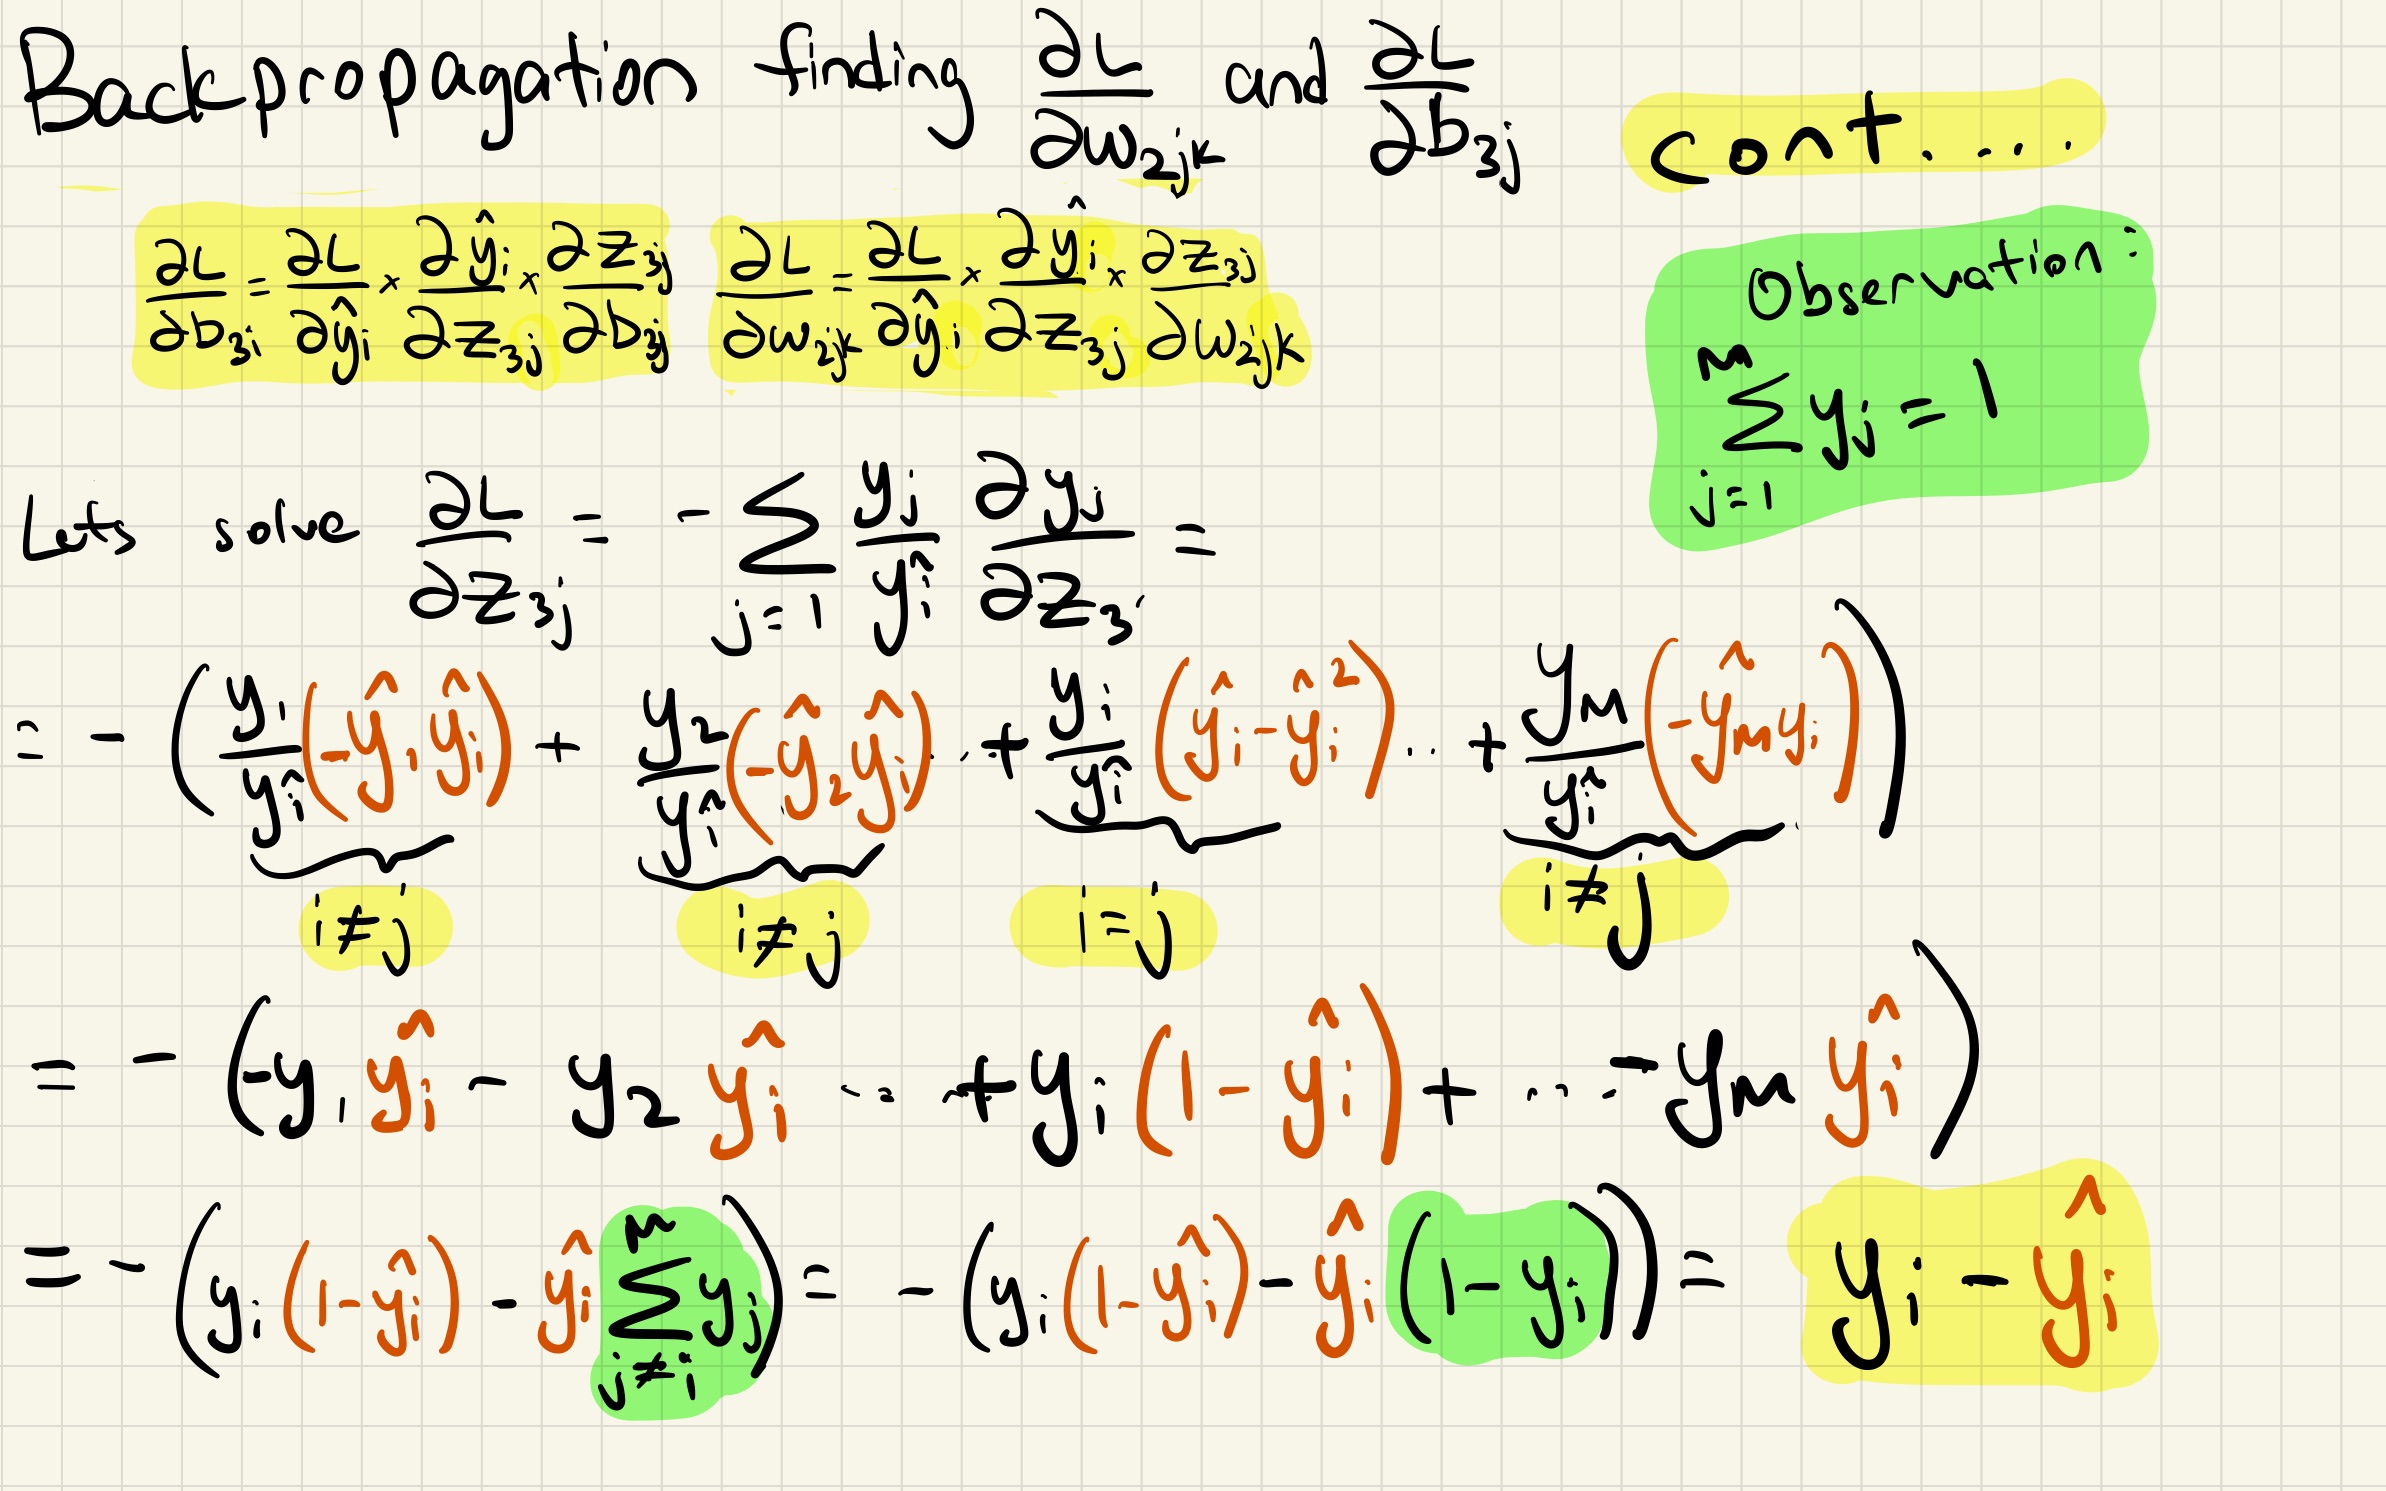 Backpropagation finding ∂L/∂w₂jk and ∂L/∂b₃j cont....
∂L/∂b₃i = ∂L/∂ŷi × ∂ŷi/∂z₃j × ∂z₃j/∂b₃j   ∂L/∂w₂jk = ∂L/∂ŷi × ∂ŷi/∂z₃j × ∂z₃j/∂w₂jk
Observation:
Σ_{j=1}^{M} yj = 1
Lets solve ∂L/∂z₃j = - Σ_{j=1} yj/ŷi ∂yj/∂z₃ =
= - ( y₁/ŷi (-ŷ₁ŷi) + y₂/ŷi (-ŷ₂ŷi) ... + yi/ŷi (ŷi - ŷi²) ... + yM/ŷi (-ŷMyi) )
i≠j i≠j i=j i≠j
= - ( -y₁ŷi - y₂ŷi ... + yi(1-ŷi) + ... - yMŷi )
= - ( yi(1-ŷi) - ŷi Σ_{j≠i}^{M} yj ) = - ( yi(1-ŷi) - ŷi(1-yi) ) = yi - ŷi